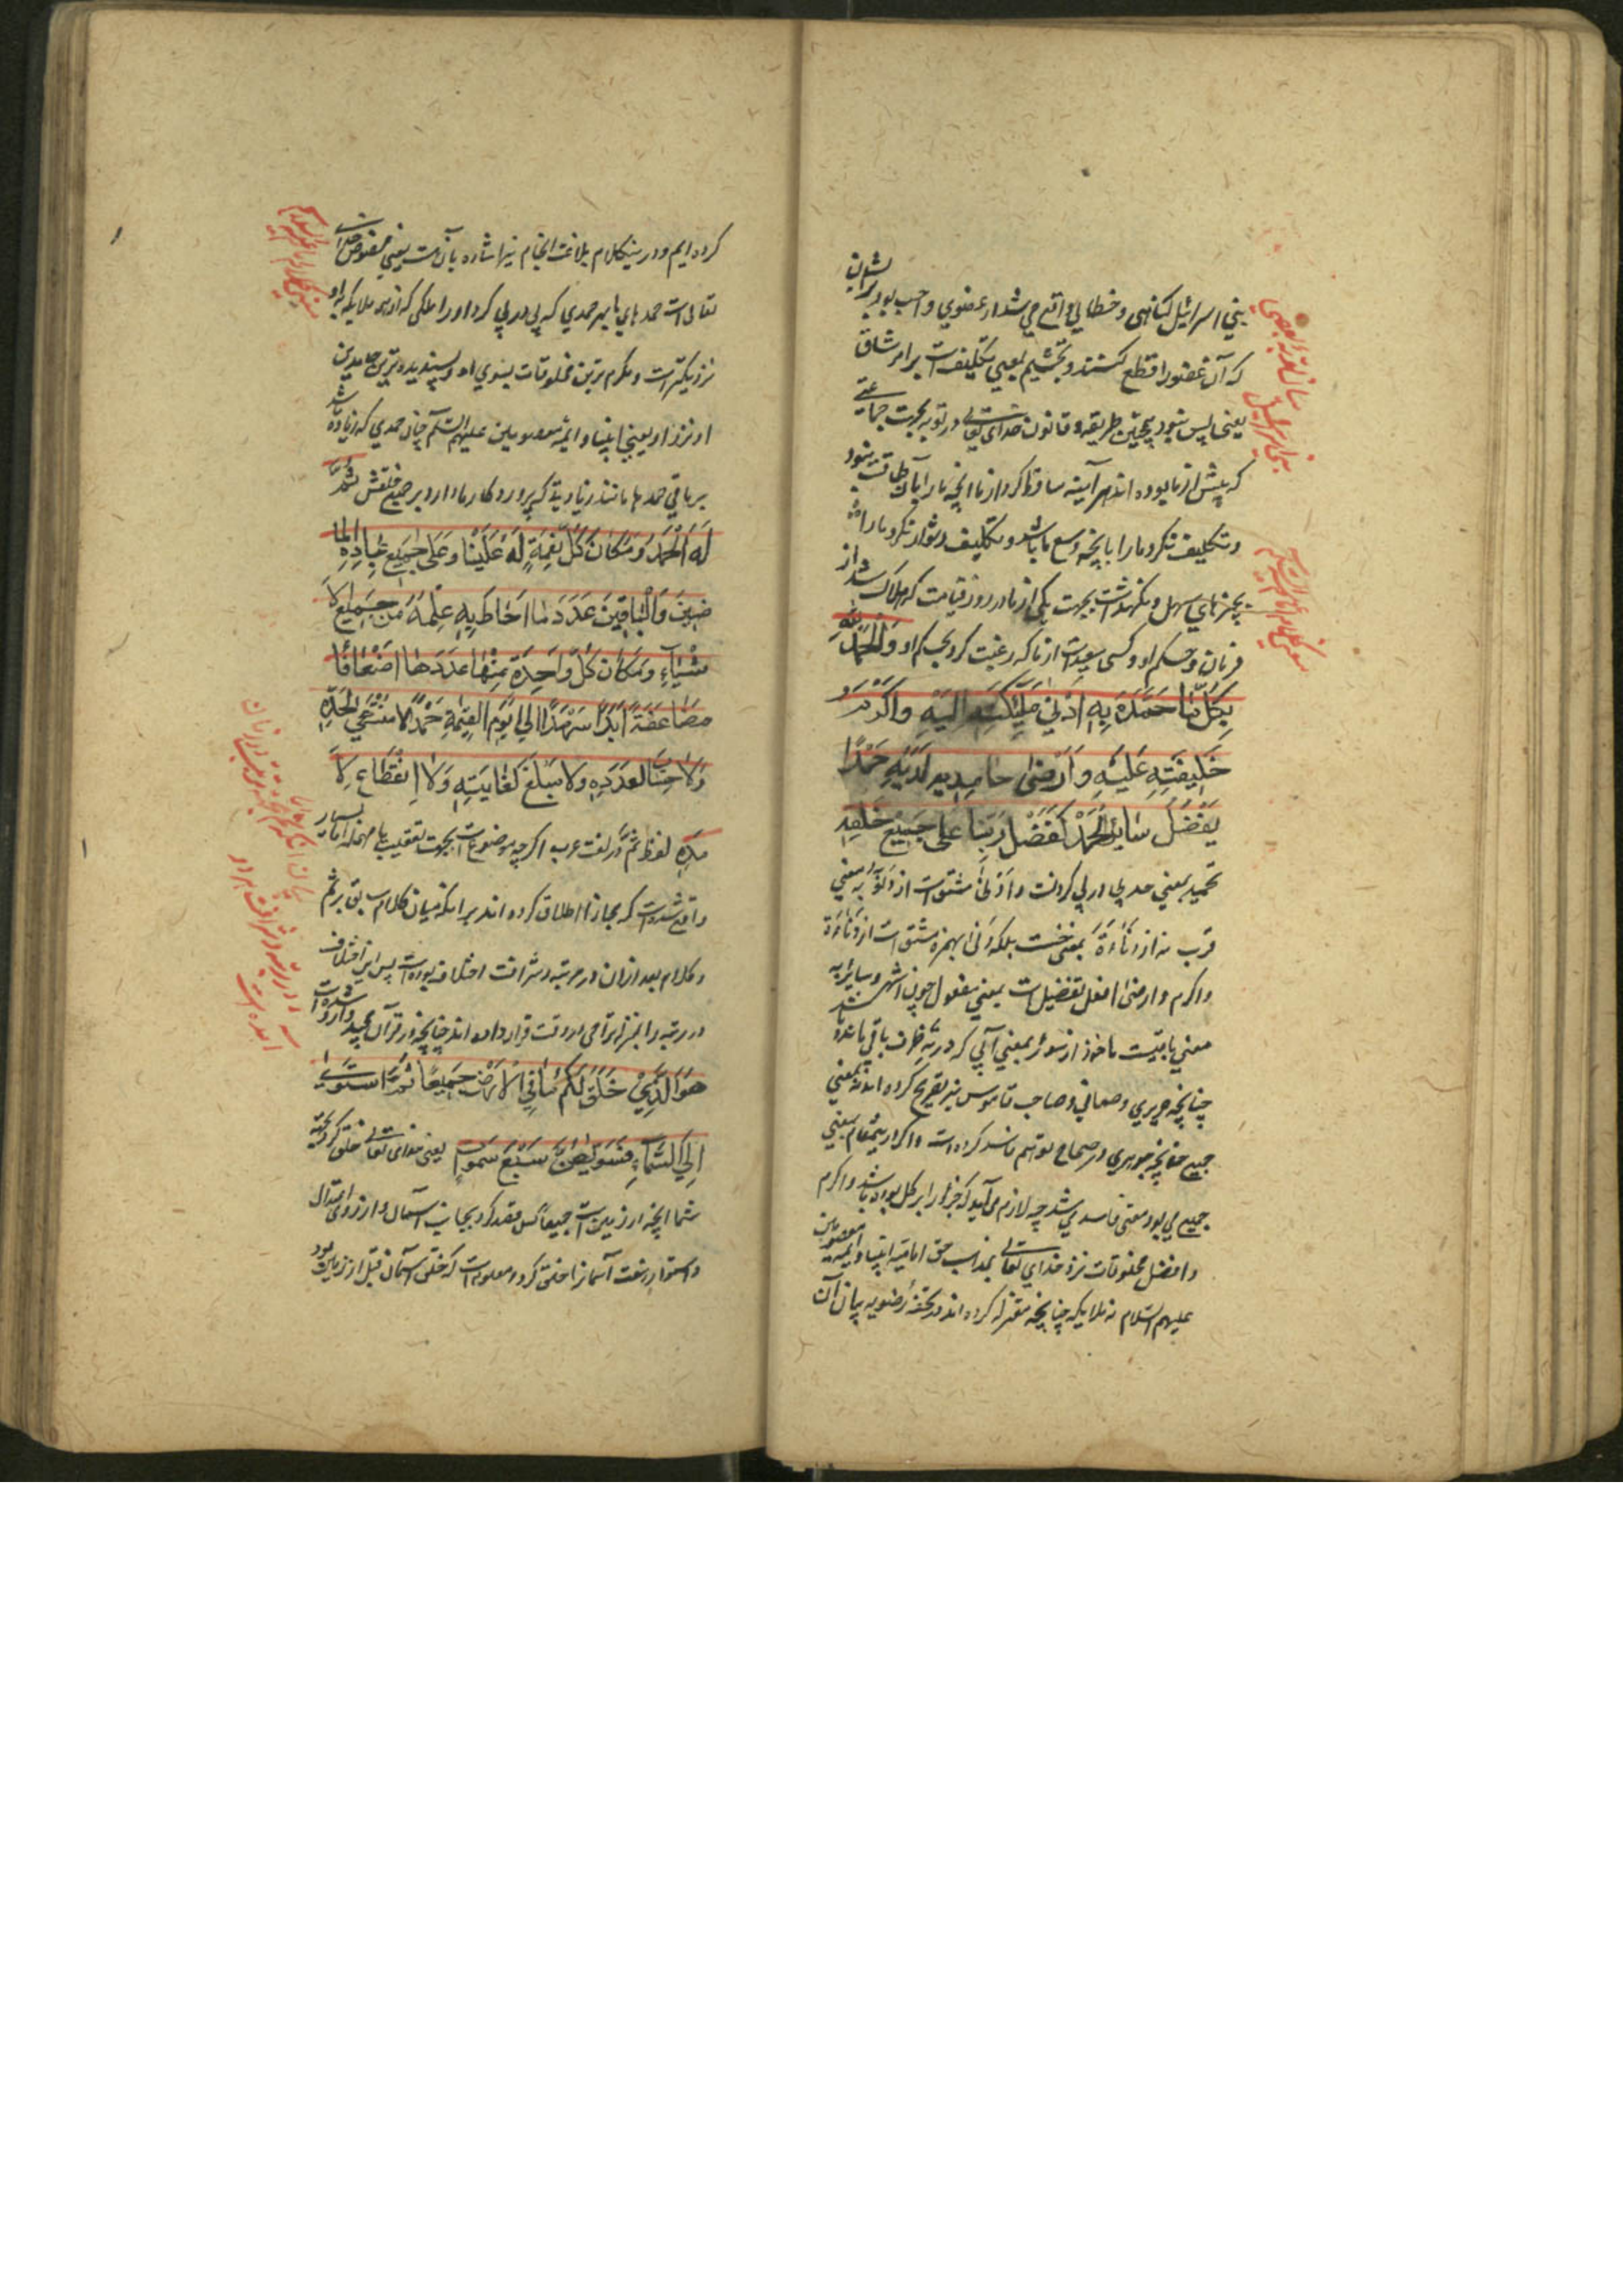 بني اسرائيل كناهى و خطايي واقع مي شد از عضوي واجب بود بر ايشان
كه آن عضو را قطع كنند و تجشيم بمعني تكليف است بر امر شاق
يعني پس نبود همچنين طريقه و قانون خداى تعالى در توبه بجهت جماعتى
كه پيش از ما بوده اند هر آينه ساقط كرد از ما آنچه ما را بآن طاقت نبود
و تكليف نكرد ما را مگر بآنچه وسع ما باشد و تكليف دشوار نكرد ما را
بچيزهاي سهل و نكذاشت بجهت يكى از ما در روز قيامت كه هلاك شد از
فرمان و حكم او و كسى سعيد است از ما كه رغبت كرد بحكم او وَالْحَمْدُ لِلّهِ
بِكُلِّ مَا حَمَّدَهُ بِهِ اَدْنىٰ مَلٰئِكَتِهِ اِلَيْهِ وَاَكْرَمُ
خَلِيقَتِهِ عَلَيْهِ وَاَرْضىٰ حَامِدِيهِ لَدَيْهِ حَمْدًا
يَفْضُلُ سَائِرَ الْحَمْدِ كَفَضْلِ رَبِّنَا عَلىٰ جَمِيعِ خَلْقِهِ
تحميد بمعني حمد پي در پي كردنست و اَدْنىٰ مشتق است از دُنُوّ بمعني
قرب نه از دَنَاءَة بمعنى خست بلكه ادنأ بهمزه مشتق است از دَنَاءَة
و اكرم و ارضى افعل تفضيل است بمعني مفعول چون اشهر و سائر به
معني باقيست ماخوذ از سؤر بمعني آبي كه در ته ظرف باقي مانده باشد
چنانچه حريري و صغاني و صاحب قاموس نيز تصريح كرده اند نه بمعني
جميع چنانچه جوهري در صحاح توهم فاسد كرده است و اكر درينمقام بمعني
جميع مي بود معنى فاسد مي شد چه لازم مي آيد كه جزو برابر كل بوده باشد و اكرم
و افضل مخلوقات نزد خداي تعالى بمذهب حق اماميه انبيا و ائمه معصومين
عليهم السلام نه ملايكه چنانچه معتزله كرده اند و در تحفه رضويه بيان آن
كرده ايم و در ينكلام بلاغت انجام نيز اشاره بآن هست يعني مخصوص خداى
تعالى است حمدهاي با هر حمدي كه پي در پي كرد او را ملكى كه از همه ملايكه باو
نزديكتر است و مكرم ترين مخلوقات بسوي او و پسنديده ترين حامدين
او نزد او يعني انبيا و ائمه معصومين عليهم السلم چنان حمدي كه زياده باشد
بر باقي حمدها مانند زيادتي كه پروردكار ما دارد بر جميع خلقش ثُمَّ
لَهُ الْحَمْدُ مَكَانَ كُلِّ نِعْمَةٍ لَهُ عَلَيْنَا وَعَلىٰ جَمِيعِ عِبَادِهِ الْمَا
ضِينَ وَالْبَاقِينَ عَدَدَ مَا اَحَاطَ بِهِ عِلْمُهُ مِنْ جَمِيعِ الْاَ
شْيَاءِ وَمَكَانَ كُلِّ وَاحِدَةٍ مِنْهَا عَدَدُهَا اَضْعَافًا
مُضَاعَفَةً اَبَدًا سَرْمَدًا اِلىٰ يَوْمِ الْقِيمَةِ حَمْدًا لَا مُنْتَهىٰ لِحَدِّهِ
وَلَا حِسَابَ لِعَدَدِهِ وَلَا مَبْلَغَ لِغَايَتِهِ وَلَا انْقِطَاعَ لِاَ
مَدِهِ لفظ ثُمَّ در لغت عرب اكرچه موضوع است بجهت تعقيب با مهلت اما بسيار
واقع شده است كه مجازا اطلاق كرده اند بر اينكه ميان كلام سابق بر ثم
و كلام بعد از ان در مرتبه و شرافت اختلاف بوده است پس اين اختلاف
در رتبه را بمنزله تراخى در وقت قرار داده اند چنانچه در قرآن مجيد وارد شده است
هُوَ الَّذِيْ خَلَقَ لَكُمْ مَا فِي الْاَرْضِ جَمِيعًا ثُمَّ اسْتَوىٰ
اِلَي السَّمَاءِ فَسَوّٰيهُنَّ سَبْعَ سَمٰوَاتٍ يعني خداى تعالى خلق كرد بجهة
شما آنچه در زمين است جميعا پس قصد كرد بجانب آسمان و از روى اعتدال
و استوا هفت آسمانرا خلق كرد و معلوم است كه خلق آسمان قبل از زمين بود